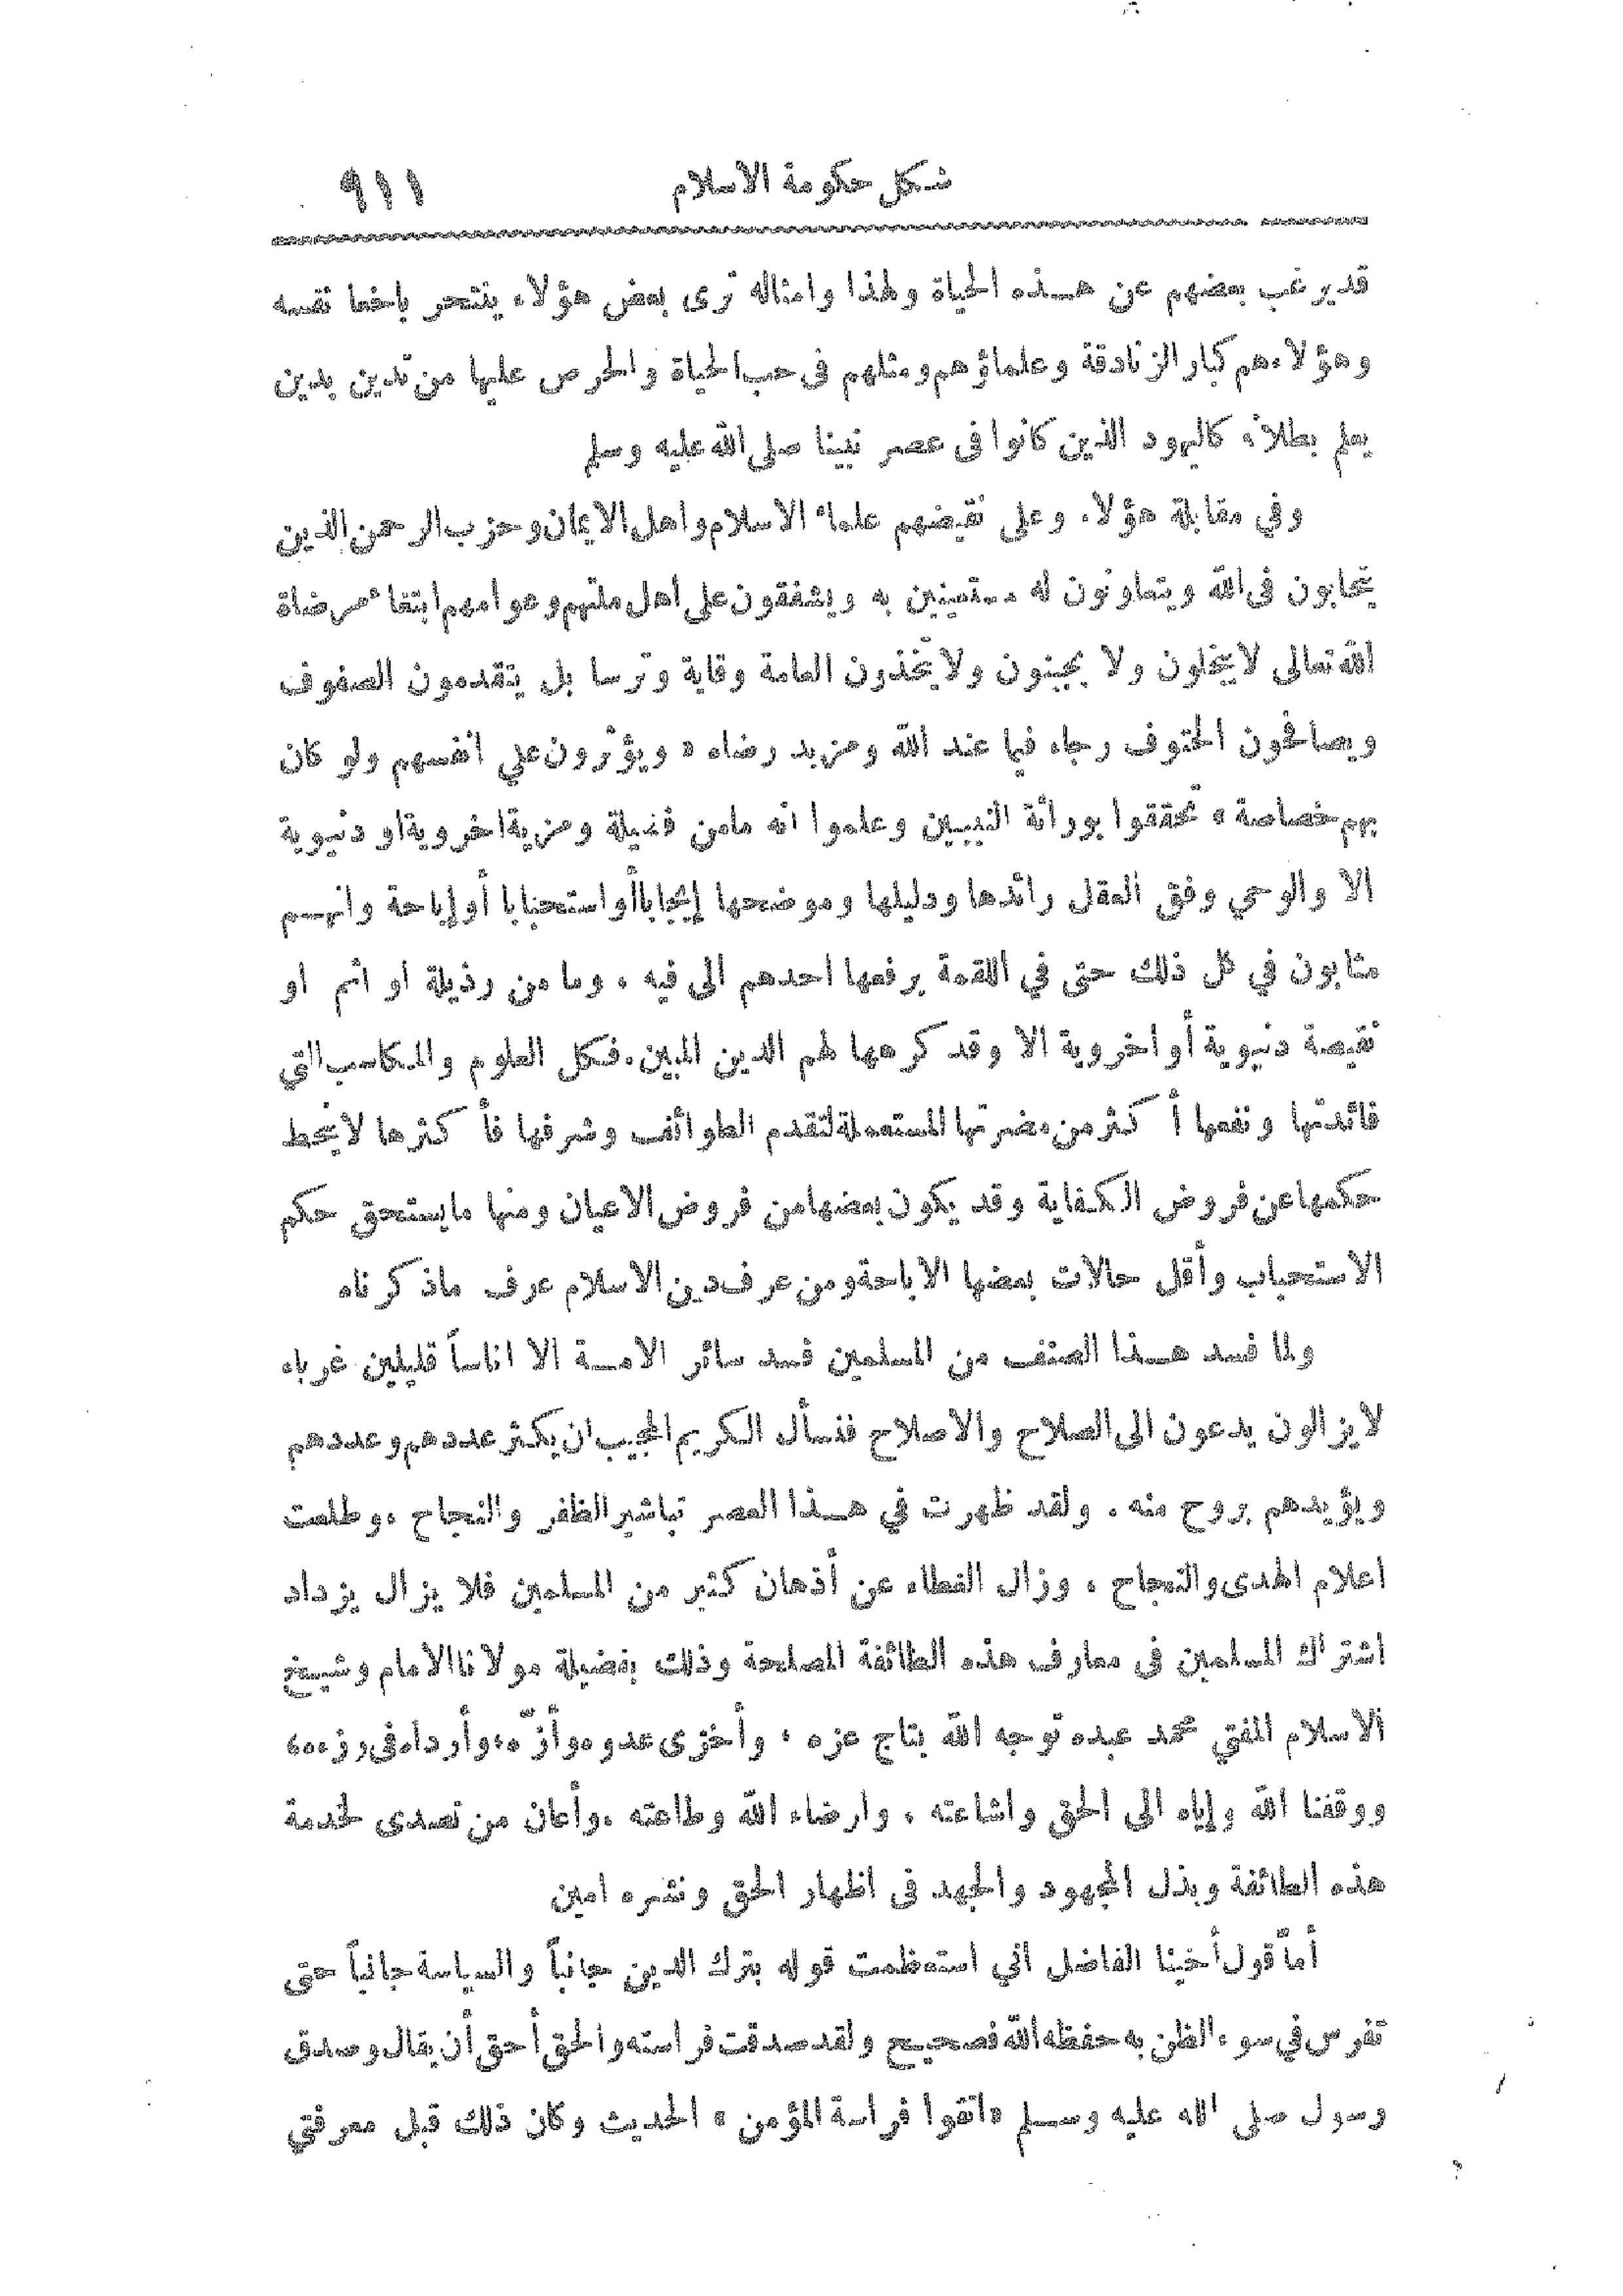 شكل حكومة الاسلام ٩١١
قد يرغب بعضهم عن هــذه الحياة ولهذا وامثاله ترى بعض هؤلاء ينتحر باخعا نفسه
وهؤلاء هم كبار الزنادقة وعلماؤهم ومثلهم فى حب الحياة والحرص عليها من تدين بدين
يعلم بطلانه كاليهود الذين كانوا فى عصر نبينا صلى الله عليه وسلم
وفي مقابلة هؤلاء وعلى نقيضهم علماء الاسلام واهل الايمان وحزب الرحمن الذين
يتحابون فى الله ويتعاونون له مستعينين به ويشفقون على اهل ملتهم وعوامهم ابتغاء مرضاة
الله تعالى لا يبخلون ولا يجبنون ولا يتخذون العامة وقاية وترسا بل يتقدمون الصفوف
ويصافحون الحتوف رجاء فيما عند الله ومزيد رضاه « ويؤثرون على انفسهم ولو كان
بهم خصاصة » تحققوا بوراثة النبيين وعلموا انه مامن فضيلة ومزية اخروية او دنيوية
الا والوحي وفق العقل رائدها ودليلها وموضحها إيجابا أو استحبابا أو إباحة وانهــم
مثابون في كل ذلك حتى في اللقمة يرفعها احدهم الى فيه ، وما من رذيلة او اثم او
نقيصة دنيوية أو اخروية الا وقد كرهها لهم الدين المبين . فكل العلوم والمكاسب التي
فائدتها ونفعها أكثر من مضرتها المستعملة لتقدم الطوائف وشرفها فأكثرها لا ينحط
حكمها عن فروض الكفاية وقد يكون بعضها من فروض الاعيان ومنها ما يستحق حكم
الاستحباب وأقل حالات بعضها الاباحة ومن عرف دين الاسلام عرف ماذكرناه
ولما فسد هــذا الصنف من المسلمين فسد سائر الامــة الا اناساً قليلين غرباء
لا يزالون يدعون الى الصلاح والاصلاح فنسأل الكريم المجيب ان يكثر عددهم وعددهم
ويؤيدهم بروح منه . ولقد ظهرت في هــذا العصر تباشير الظفر والنجاح ، وطلعت
اعلام الهدى والنجاح ، وزال الغطاء عن أذهان كثير من المسلمين فلا يزال يزداد
اشتراك المسلمين فى معارف هذه الطائفة المصلحة وذلك بفضيلة مولانا الامام وشيخ
الاسلام المفتي محمد عبده توجه الله بتاج عزه ، وأخزى عدوه وأزّه ، وأرداه فى رزه ،
ووفقنا الله وإياه الى الحق واشاعته ، وارضاء الله وطاعته ، وأعان من تصدى لخدمة
هذه الطائفة وبذل المجهود والجهد فى اظهار الحق ونشره امين
أما قول أخينا الفاضل اني استعظمت قوله بترك الدين جانباً والسياسة جانباً حتى
تفرس في سوء الظن به حفظه الله فصحيح ولقد صدقت فراسته والحق أحق أن يقال وصدق
رسول صلى الله عليه وسـلم « اتقوا فراسة المؤمن » الحديث وكان ذلك قبل معرفتي